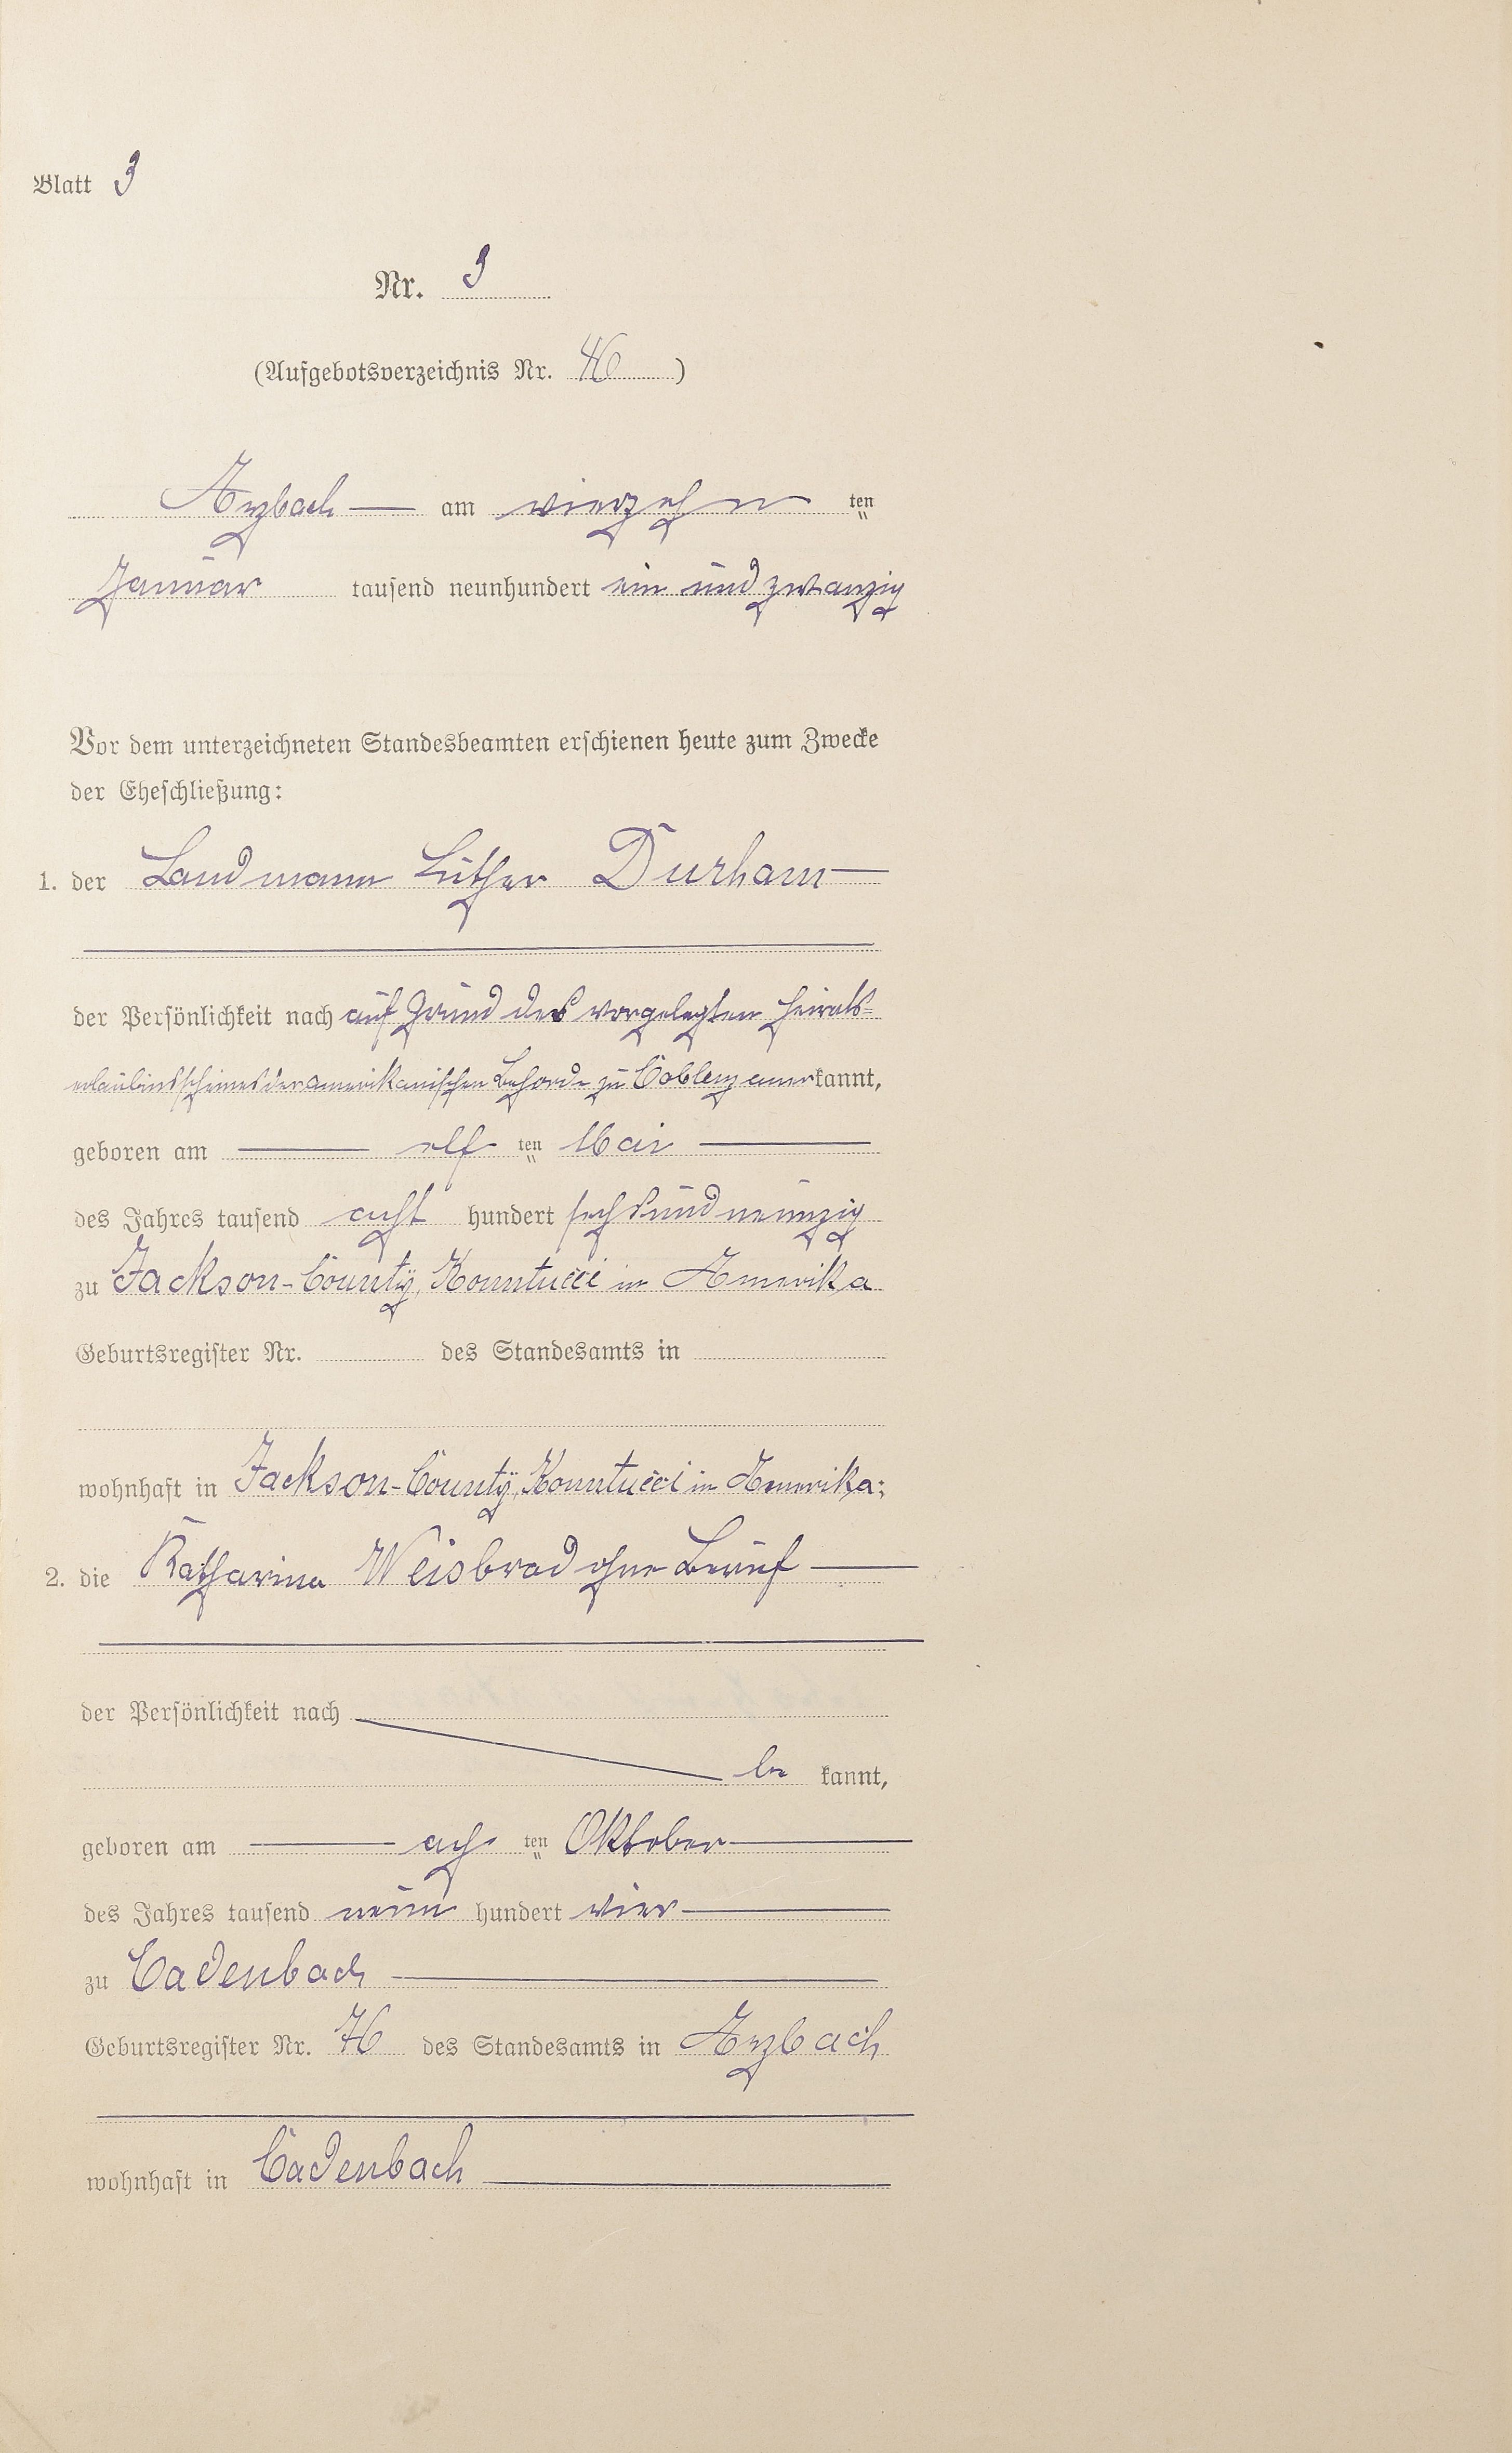 Blatt 3
Nr. 3
(Aufgebotsverzeichnis Nr. 46)
Arzbach am vierzehn ten
Januar tausend neunhundert ein und zwanzig
Vor dem unterzeichneten Standesbeamten erschienen heute zum Zwecke
der Eheschließung:
1. der Landmann Luther Durham
der Persönlichkeit nach auf Grund des vorgelegten Heirats-
erlaubnisscheines der amerikanischen Behörde zu Coblenz anerkannt,
geboren am elf ten Mai
des Jahres tausend acht hundert sechsundneunzig
zu Jackson-County, Kountucci in Amerika
Geburtsregister Nr. des Standesamts in
wohnhaft in Jackson-County, Kountucci in Amerika;
2. die Katharina Weisbrod ohne Beruf
der Persönlichkeit nach
be kannt,
geboren am ach ten Oktober
des Jahres tausend neun hundert vier
zu Cadenbach
Geburtsregister Nr. 76 des Standesamts in Arzbach
wohnhaft in Cadenbach